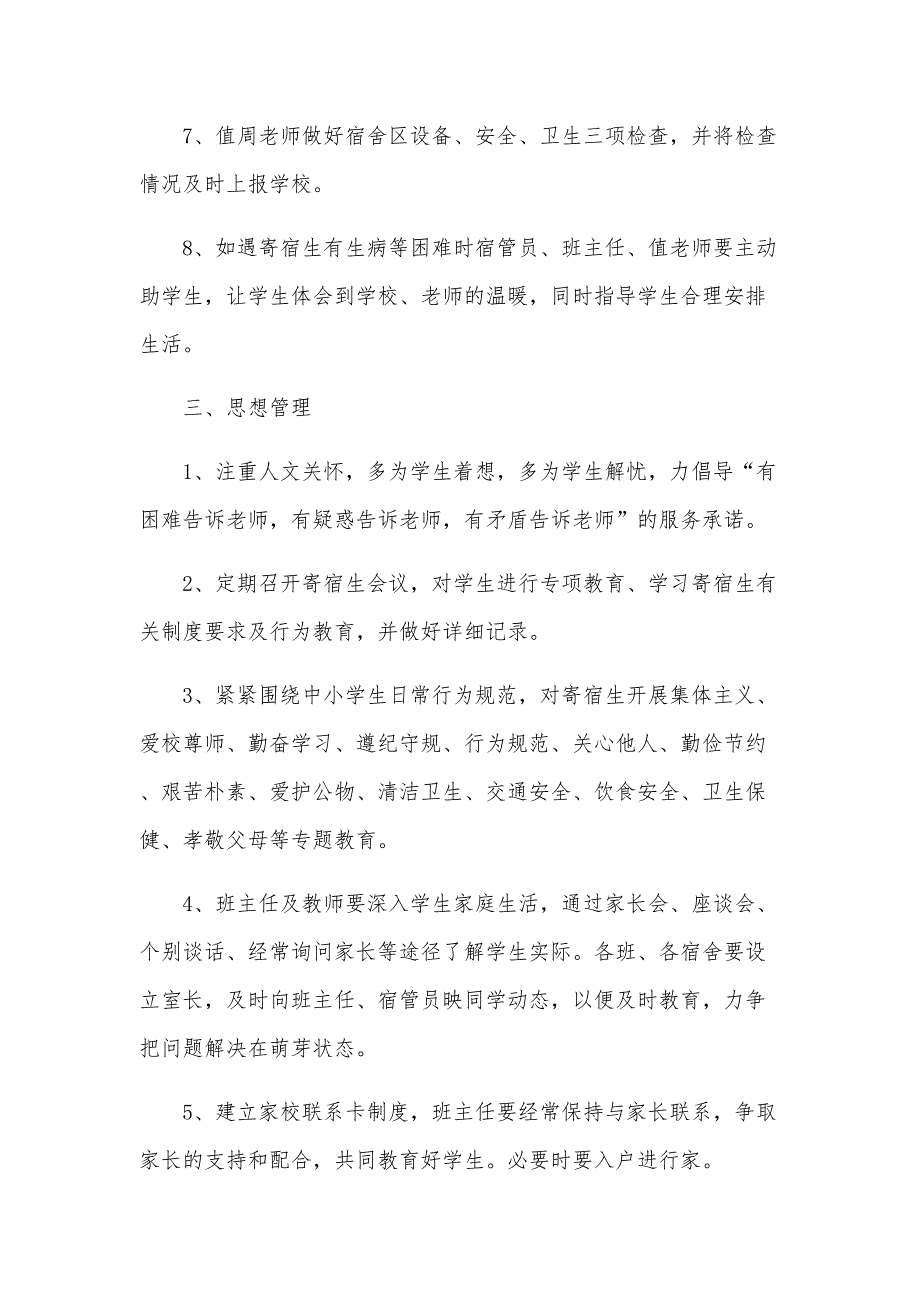 7、值周老师做好宿舍区设备、安全、卫生三项检查，并将检查
情况及时上报学校。
8、如遇寄宿生有生病等困难时宿管员、班主任、值老师要主动
助学生，让学生体会到学校、老师的温暖，同时指导学生合理安排
生活。
三、思想管理
1、注重人文关怀，多为学生着想，多为学生解忧，力倡导“有
困难告诉老师，有疑惑告诉老师，有矛盾告诉老师”的服务承诺。
2、定期召开寄宿生会议，对学生进行专项教育、学习寄宿生有
关制度要求及行为教育，并做好详细记录。
3、紧紧围绕中小学生日常行为规范，对寄宿生开展集体主义、
爱校尊师、勤奋学习、遵纪守规、行为规范、关心他人、勤俭节约
、艰苦朴素、爱护公物、清洁卫生、交通安全、饮食安全、卫生保
健、孝敬父母等专题教育。
4、班主任及教师要深入学生家庭生活，通过家长会、座谈会、
个别谈话、经常询问家长等途径了解学生实际。各班、各宿舍要设
立室长，及时向班主任、宿管员映同学动态，以便及时教育，力争
把问题解决在萌芽状态。
5、建立家校联系卡制度，班主任要经常保持与家长联系，争取
家长的支持和配合，共同教育好学生。必要时要入户进行家。